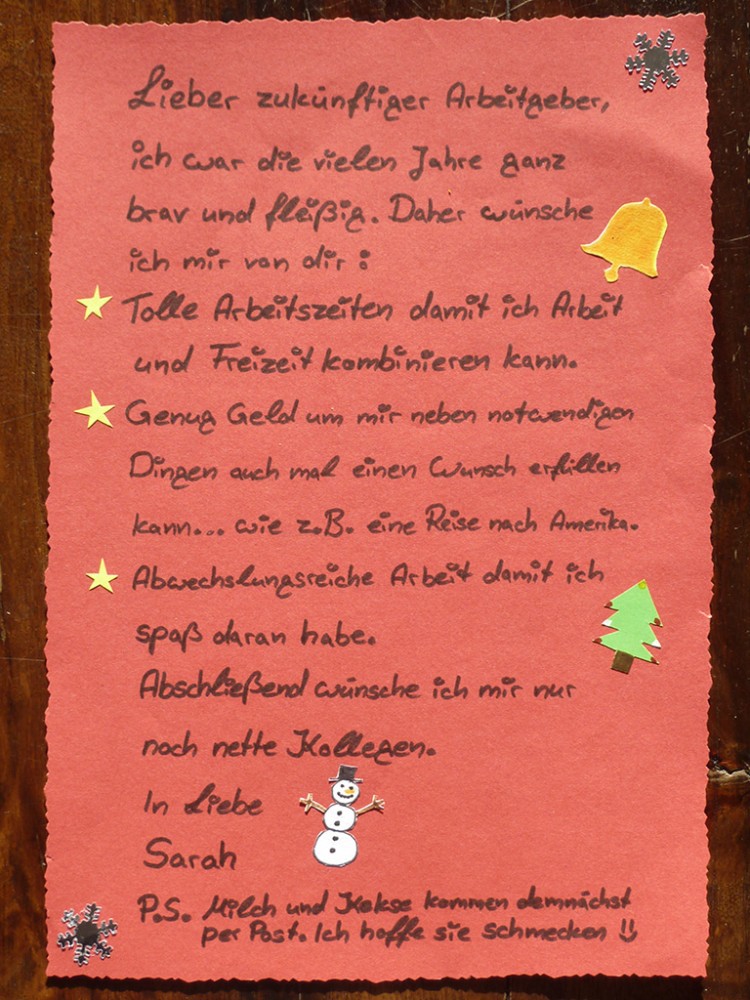 Lieber zukünftiger Arbeitgeber,
ich war die vielen Jahre ganz
brav und fleißig. Daher wünsche
ich mir von dir:
Tolle Arbeitszeiten damit ich Arbeit
und Freizeit kombinieren kann.
Genug Geld um mir neben notwendigen
Dingen auch mal einen Wunsch erfüllen
kann... wie z.B. eine Reise nach Amerika.
Abwechslungsreiche Arbeit damit ich
spaß daran habe.
Abschließend wünsche ich mir nur
noch nette Kollegen.
In Liebe
Sarah
P.S. Milch und Kekse kommen demnächst
per Post. Ich hoffe sie schmecken :)